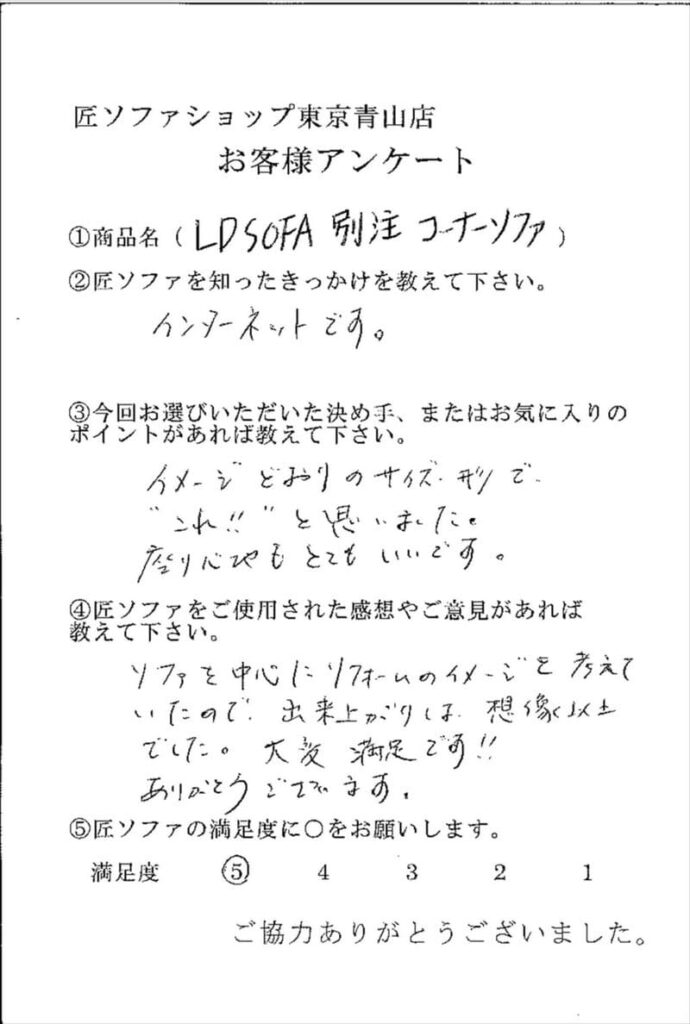 匠ソファショップ東京青山店
お客様アンケート
①商品名（ LDSOFA 別注 コーナーソファ ）
②匠ソファを知ったきっかけを教えて下さい。
インターネットです。
③今回お選びいただいた決め手、またはお気に入りの
ポイントがあれば教えて下さい。
イメージどおりのサイズ、形で、
"これ!!"と思いました。
座り心地もとてもいいです。
④匠ソファをご使用された感想やご意見があれば
教えて下さい。
ソファを中心にリフォームのイメージを考えて
いたので、出来上がりは、想像以上
でした。大変満足です!!
ありがとうございます。
⑤匠ソファの満足度に○をお願いします。
満足度 ⑤ 4 3 2 1
ご協力ありがとうございました。